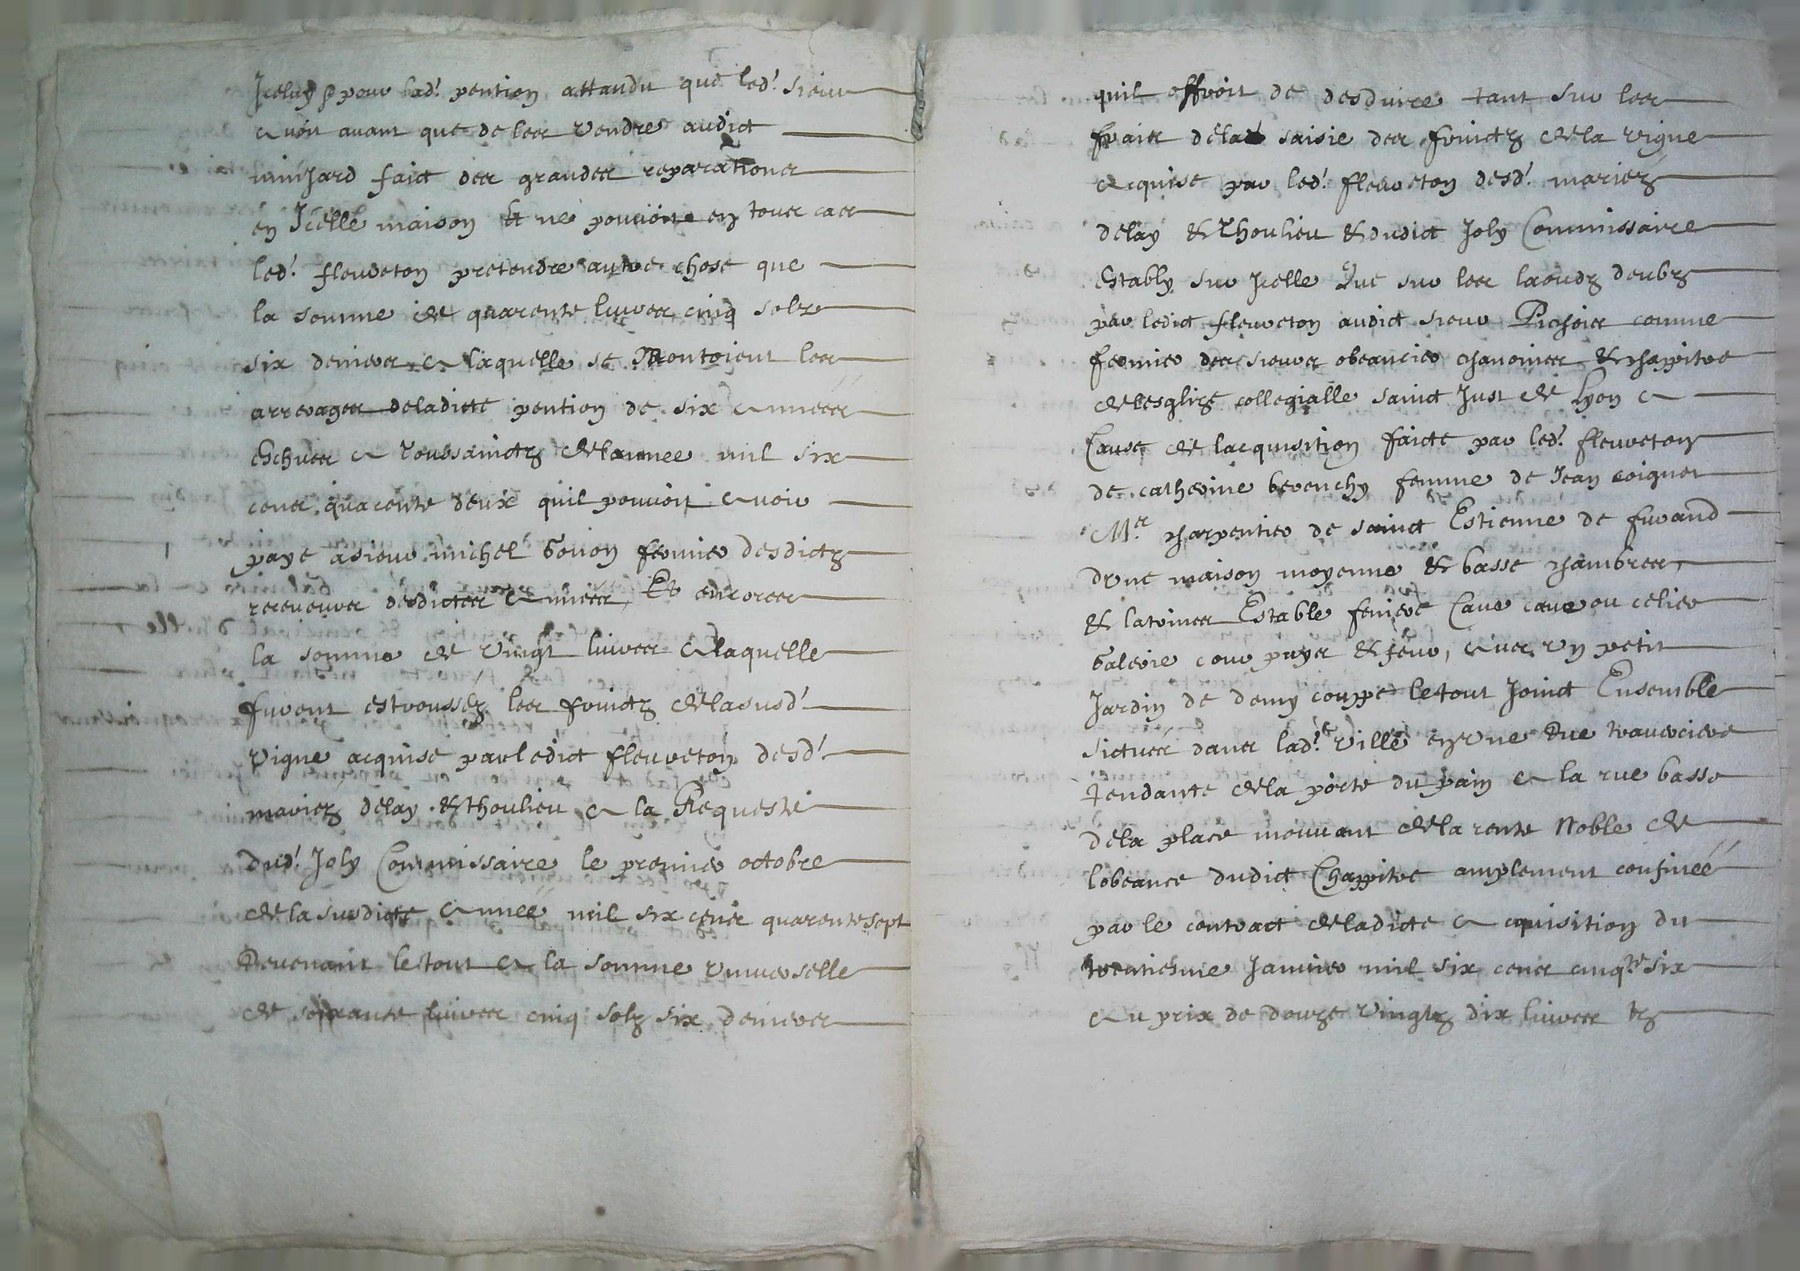 Iceluy p pour lad.' pention attandu que led.' sieur
avoit avant que de les vendre audict
minjard faict des grandes reparationes
en Icelle maison Et ne pouvoint en tous cas
led.' fleureton pretendre autre chose que
la somme de quarente livres cinq solz
six deniers a laquelle se Montoient les
arrerages deladicte pention de six années
Escheues a Toussainctz delannee mil six
cens quarente deux quil pouvoit avoir
payé a sieur michel Gonon fermier desdictz
revenus desdictes années Et encores
la somme de vingt livres a laquelle
furent estroussés les fruictz delasusd.'
vigne acquise par ledict fleureton desd.'
mariez delay & thoulieu a la Requeste
dud.' Joly Commissaire le premier octobre
dela susdicte année mil six cens quarente sept
Revenant letout a la somme universelle
de soixante livres cinq solz six deniers
quil offroit de desduire tant sur les
frais dela saisie des fruictz dela vigne
acquise par led.' fleureton desd.' mariez
delay & Thoulieu & dudict Joly Commissaire
Estably sur Icelle Que sur les laoudz deubz
par ledict fleureton audict sieur Pichois comme
fermier des sieurs obeancier chanoines & chappitre
delesglize collegialle sainct Just de lyon a
Cause de lacquisition faicte par led.' fleureton
de catherine berenchy femme de Jean coignet
M.re charpentier de sainct Estienne de furand
dune maison moyenne & basse chambres
& latrines Estable feniere Cave cave ou celier
Galerie cour puys & four, avec un petit
Jardin de demy couppe letout Joinct Ensemble
sictués dans lad.' ville en une Rue traverciere
tendante dela porte du pain a la rue basse
dela place mouvant dela rente Noble de
lobeance dudict Chappitre amplement confinéé
par le contract deladicte acquisition du
trentiesme Janvier mil six cens cinq.te six
au prix de douze vingtz dix livres tz